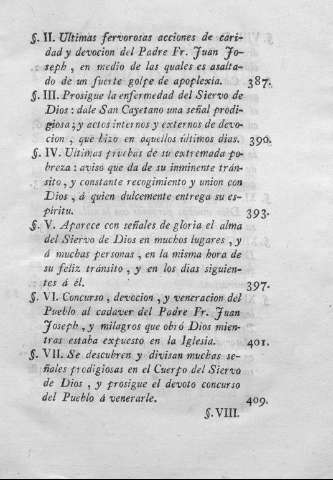 §. II. Ultimas fervorosas acciones de cari-
dad y devocion del Padre Fr. Juan Jo-
seph, en medio de las quales es asalta-
do de un fuerte golpe de apoplexia. 387.
§. III. Prosigue la enfermedad del Siervo de
Dios: dale San Cayetano una señal prodi-
giosa; y actos internos y externos de devo-
cion, que hizo en aquellos últimos dias. 390.
§. IV. Ultimas pruebas de su extremada po-
breza: aviso que da de su inminente trán-
sito, y constante recogimiento y union con
Dios, á quien dulcemente entrega su es-
píritu. 393.
§. V. Aparece con señales de gloria el alma
del Siervo de Dios en muchos lugares, y
á muchas personas, en la misma hora de
su feliz tránsito, y en los dias siguien-
tes á él. 397.
§. VI. Concurso, devocion, y veneracion del
Pueblo al cadaver del Padre Fr. Juan
Joseph, y milagros que obró Dios mien-
tras estaba expuesto en la Iglesia. 401.
§. VII. Se descubren y divisan muchas se-
ñales prodigiosas en el Cuerpo del Siervo
de Dios, y prosigue el devoto concurso
del Pueblo á venerarle. 409.
§. VIII.